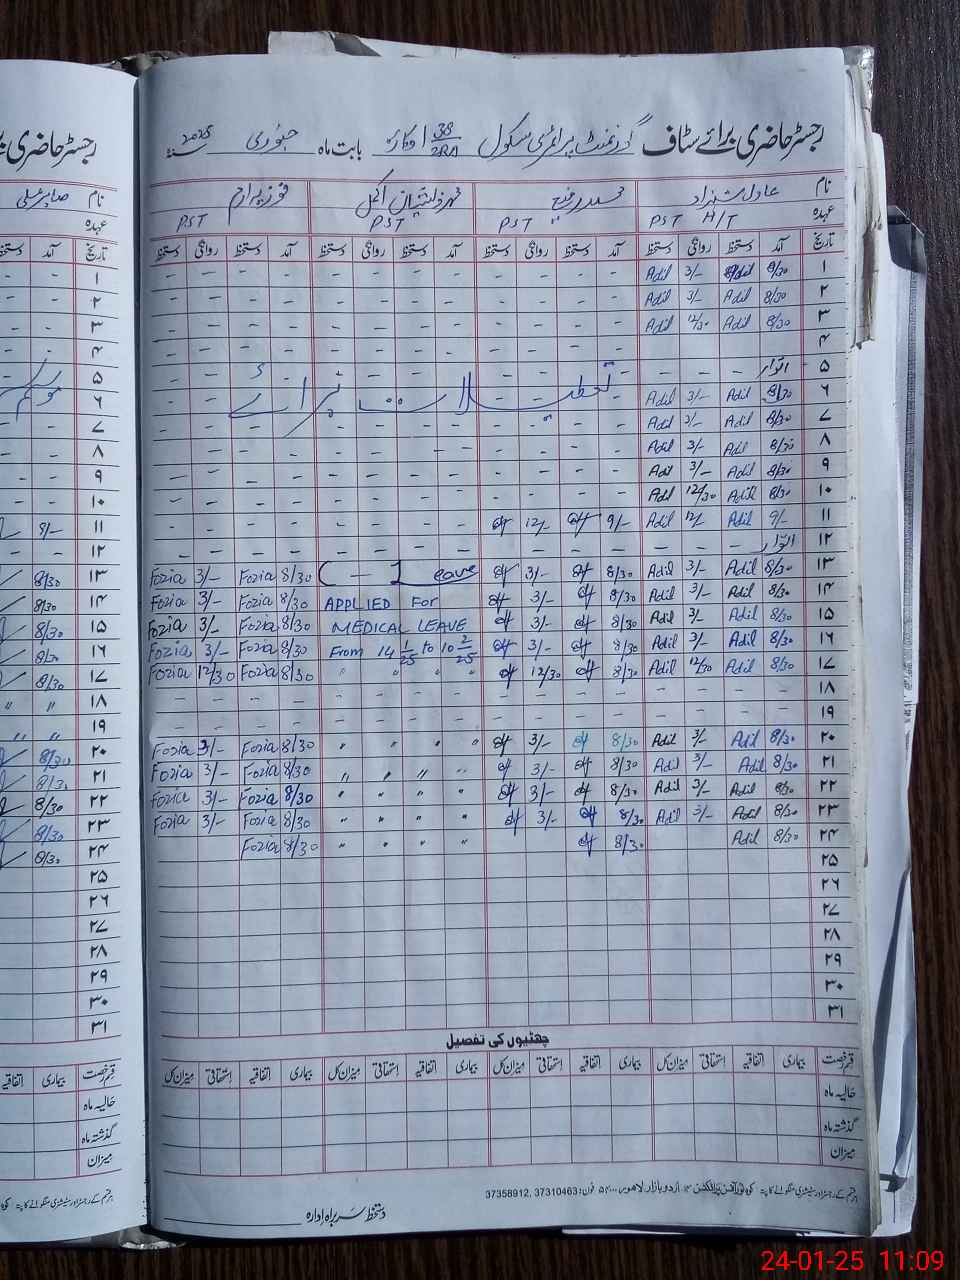 رجسٹر حاضری برائے سٹاف گورنمنٹ پرائمری سکول 38/2RA اوکاڑہ بابت ماہ جنوری 2025
نام عادل شہزاد
عہدہ PST H/T PST PST PST
تاریخ آمد دستخط روانگی دستخط آمد دستخط روانگی دستخط آمد دستخط روانگی دستخط آمد دستخط روانگی دستخط
۱ 8/30 Adil 3/- Adil - - - - - - - - - - - -
۲ 8/30 Adil 3/- Adil - - - - - - - - - - - -
۳ 8/30 Adil 12/30 Adil - - - - - - - - - - - -
۴ - - - - - - - - - - - -
۵ اتوار - - - - - - - - - - - - - - -
تعطیلات برائے موسم
۶ 8/30 Adil 3/- Adil
۷ 8/30 Adil 3/- Adil - - - - - - - - - - - -
۸ 8/30 Adil 3/- Adil - - - - - - - - - - - -
۹ 8/30 Adil 3/- Adil - - - - - - - - - - - -
۱۰ 8/30 Adil 12/30 Adil - - - - - - - - - - - -
۱۱ 9/- Adil 12/- Adil 9/- 12/- - - - - - - - -
۱۲ اتوار - - - - - - - - - - - - - - -
۱۳ 8/30 Adil 3/- Adil 8/30 3/- Leave 8/30 Fozia 3/- Fozia
۱۴ 8/30 Adil 3/- Adil 8/30 3/- APPLIED For 8/30 Fozia 3/- Fozia
۱۵ 8/30 Adil 3/- Adil 8/30 3/- MEDICAL LEAVE 8/30 Fozia 3/- Fozia
۱۶ 8/30 Adil 3/- Adil 8/30 3/- From 14 1/25 to 10 2/25 8/30 Fozia 3/- Fozia
۱۷ 8/30 Adil 12/30 Adil 8/30 12/30 " " " " 8/30 Fozia 12/30 Fozia
۱۸ - - - - - - - - - - - - - - - -
۱۹ - - - - - - - - - - - - - - - -
۲۰ 8/30 Adil 3/- Adil 8/30 3/- " " " " 8/30 Fozia 3/- Fozia
۲۱ 8/30 Adil 3/- Adil 8/30 3/- " " " " 8/30 Fozia 3/- Fozia
۲۲ 8/30 Adil 3/- Adil 8/30 3/- " " " " 8/30 Fozia 3/- Fozia
۲۳ 8/30 Adil 3/- Adil 8/30 3/- " " " " 8/30 Fozia 3/- Fozia
۲۴ 8/30 Adil 8/30 " " " " 8/30 Fozia
۲۵
۲۶
۲۷
۲۸
۲۹
۳۰
۳۱
چھٹیوں کی تفصیل
قسم رخصت بیماری اتفاقیہ استحقاقی میزان کل بیماری اتفاقیہ استحقاقی میزان کل بیماری اتفاقیہ استحقاقی میزان کل بیماری اتفاقیہ استحقاقی میزان کل
حالیہ ماہ
گذشتہ ماہ
میزان
ہر قسم کے رجسٹر اور سٹیشنری منگوانے کا پتہ اردو بازار لاہور فون: 37310463 ,37358912
دستخط سربراہ ادارہ
رجسٹر حاضری
نام صابر علی
عہدہ
تاریخ آمد دستخط
۱ - -
۲ - -
۳ - -
۴
۵
۶
۷
۸
۹
۱۰
۱۱ 9/-
۱۲ - -
۱۳ 8/30
۱۴ 8/30
۱۵ 8/30
۱۶ 8/30
۱۷ 8/30
۱۸ " "
۱۹ " "
۲۰ 8/30
۲۱ 8/30
۲۲ 8/30
۲۳ 8/30
۲۴ 8/30
۲۵
۲۶
۲۷
۲۸
۲۹
۳۰
۳۱
قسم رخصت بیماری اتفاقیہ
حالیہ ماہ
گذشتہ ماہ
میزان
24-01-25 11:09